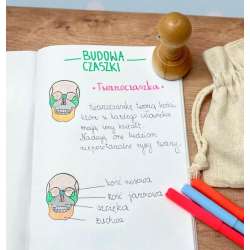 BUDOWA
CZASZKI
Twarzoczaszka
Twarzoczaszkę tworzą kości,
które u każdego człowieka
mają inny kształt.
Nadają one ludziom
niepowtarzalne rysy twarzy.
kość nosowa
kość jarzmowa
szczęka
żuchwa